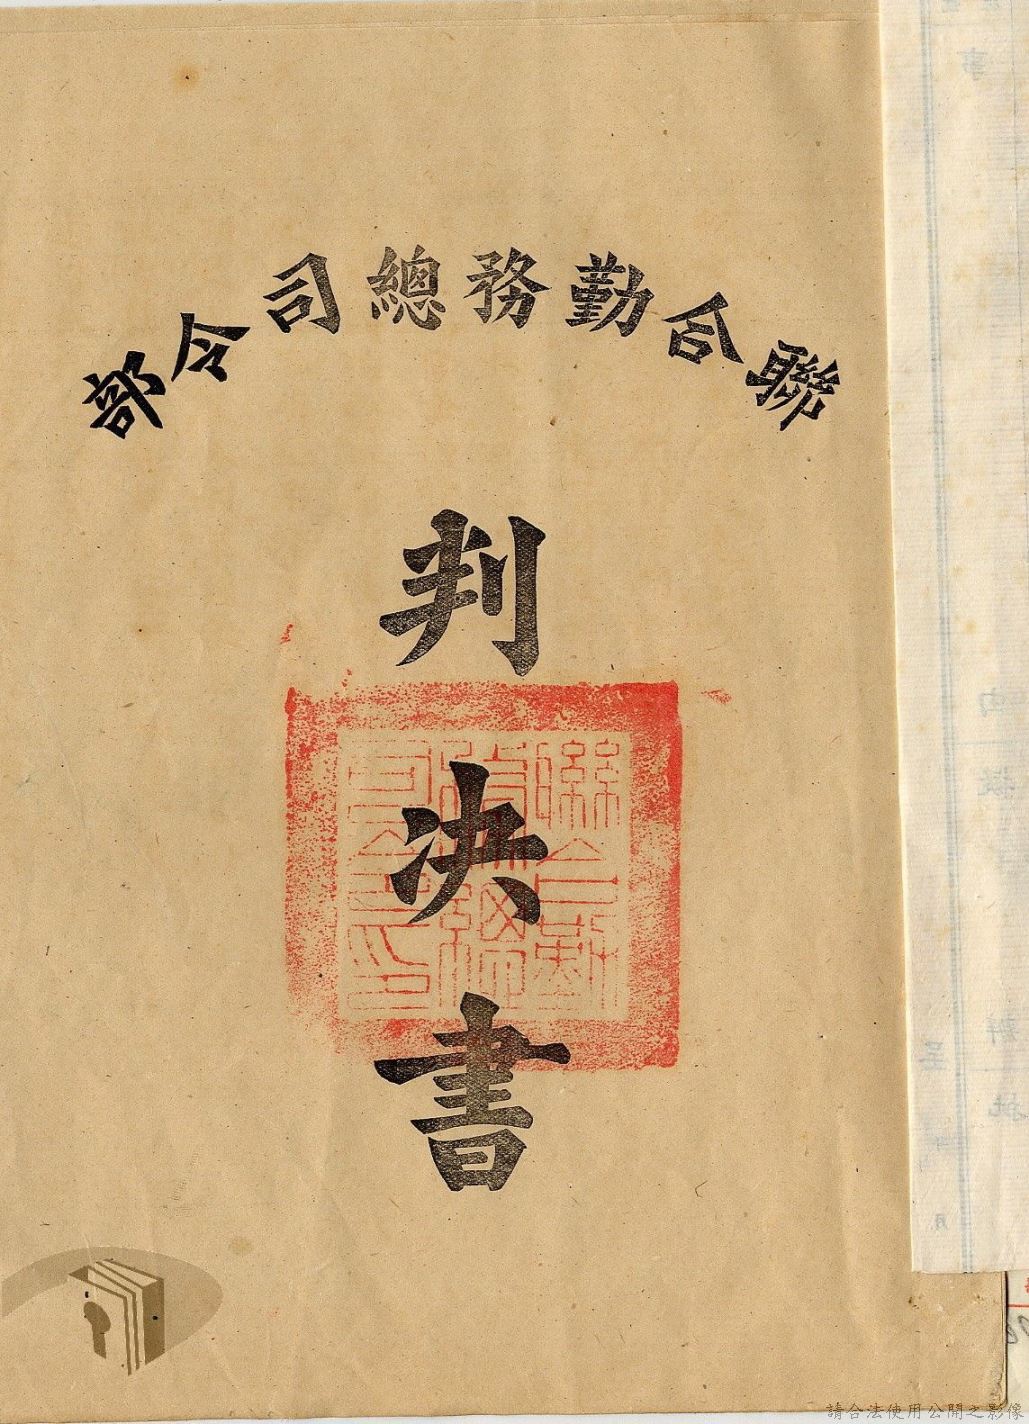 聯合勤務總司令部
判決書
聯合勤
務總
司令印
請合法使用公開之影像